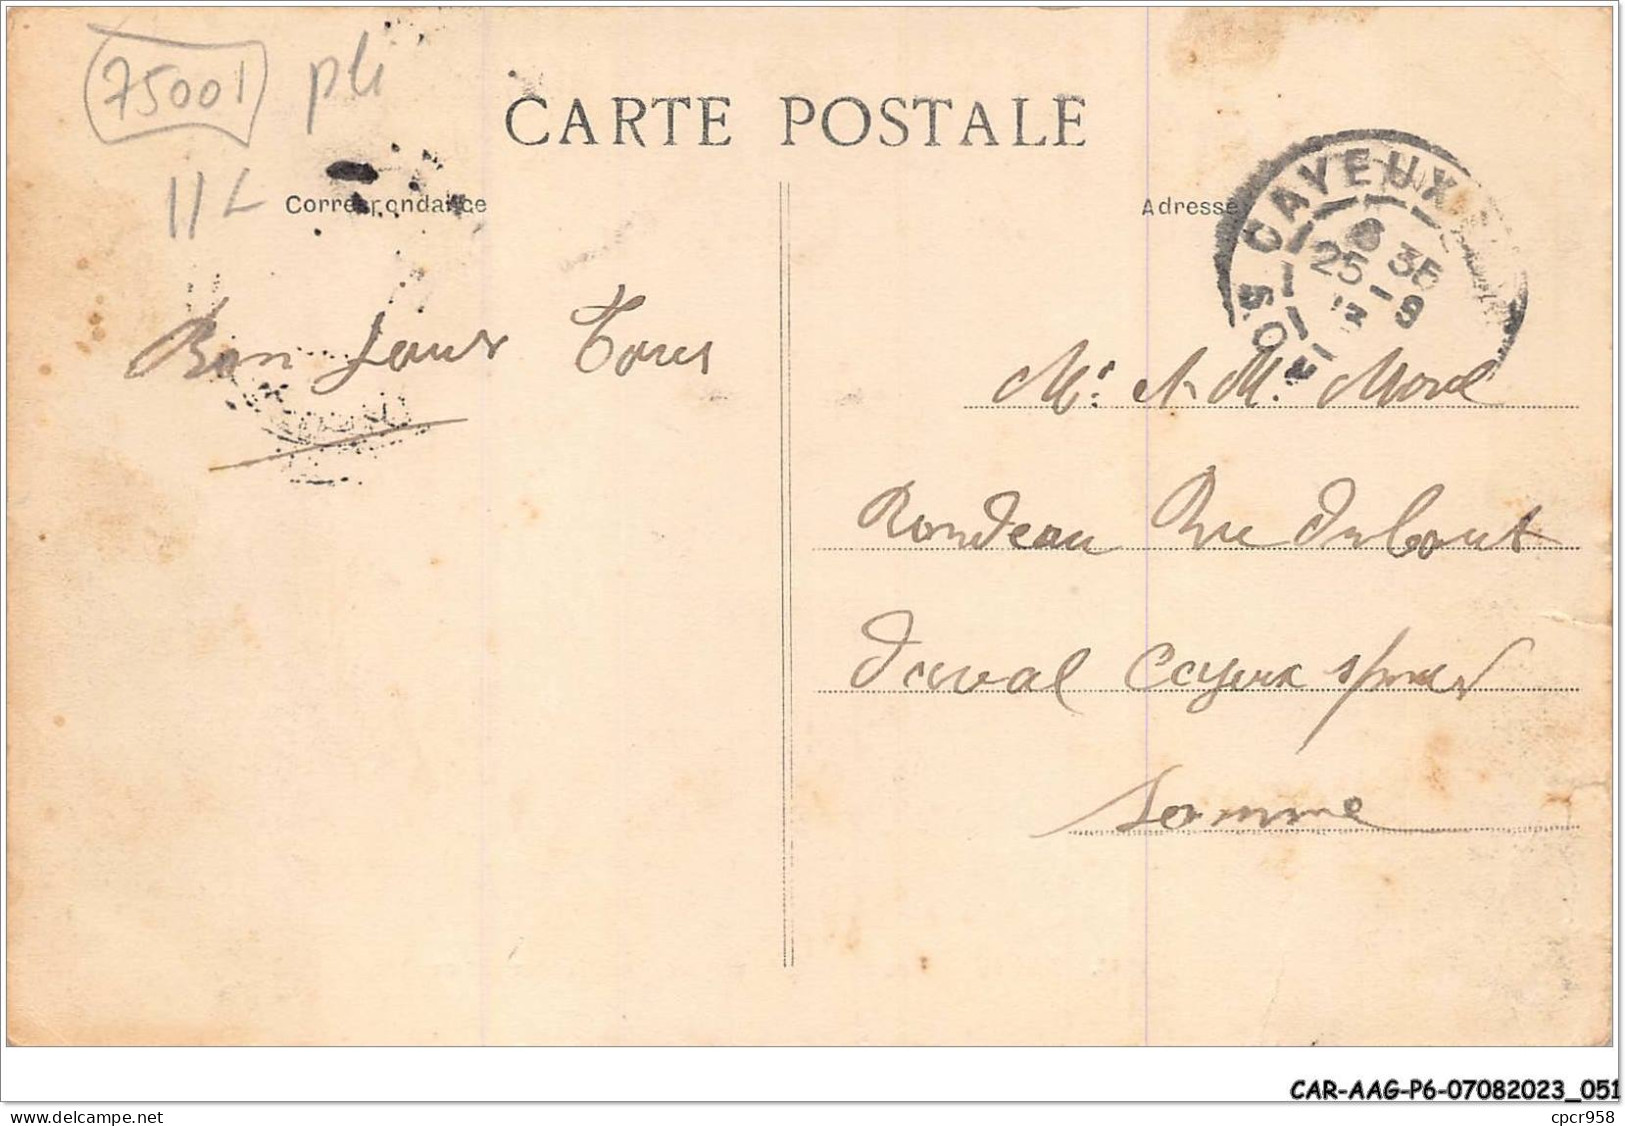 75001 pli
11L
CARTE POSTALE
Correspondance
Adresse
CAYEUX
6 35
25 - 9
Bon Jour Tous
Mr et Me Morel
Rondeau Rue Dubout
Duval Cayeux s/mer
Somme
CAR-AAG-P6-07082023_051
www.delcampe.net
cpcr958